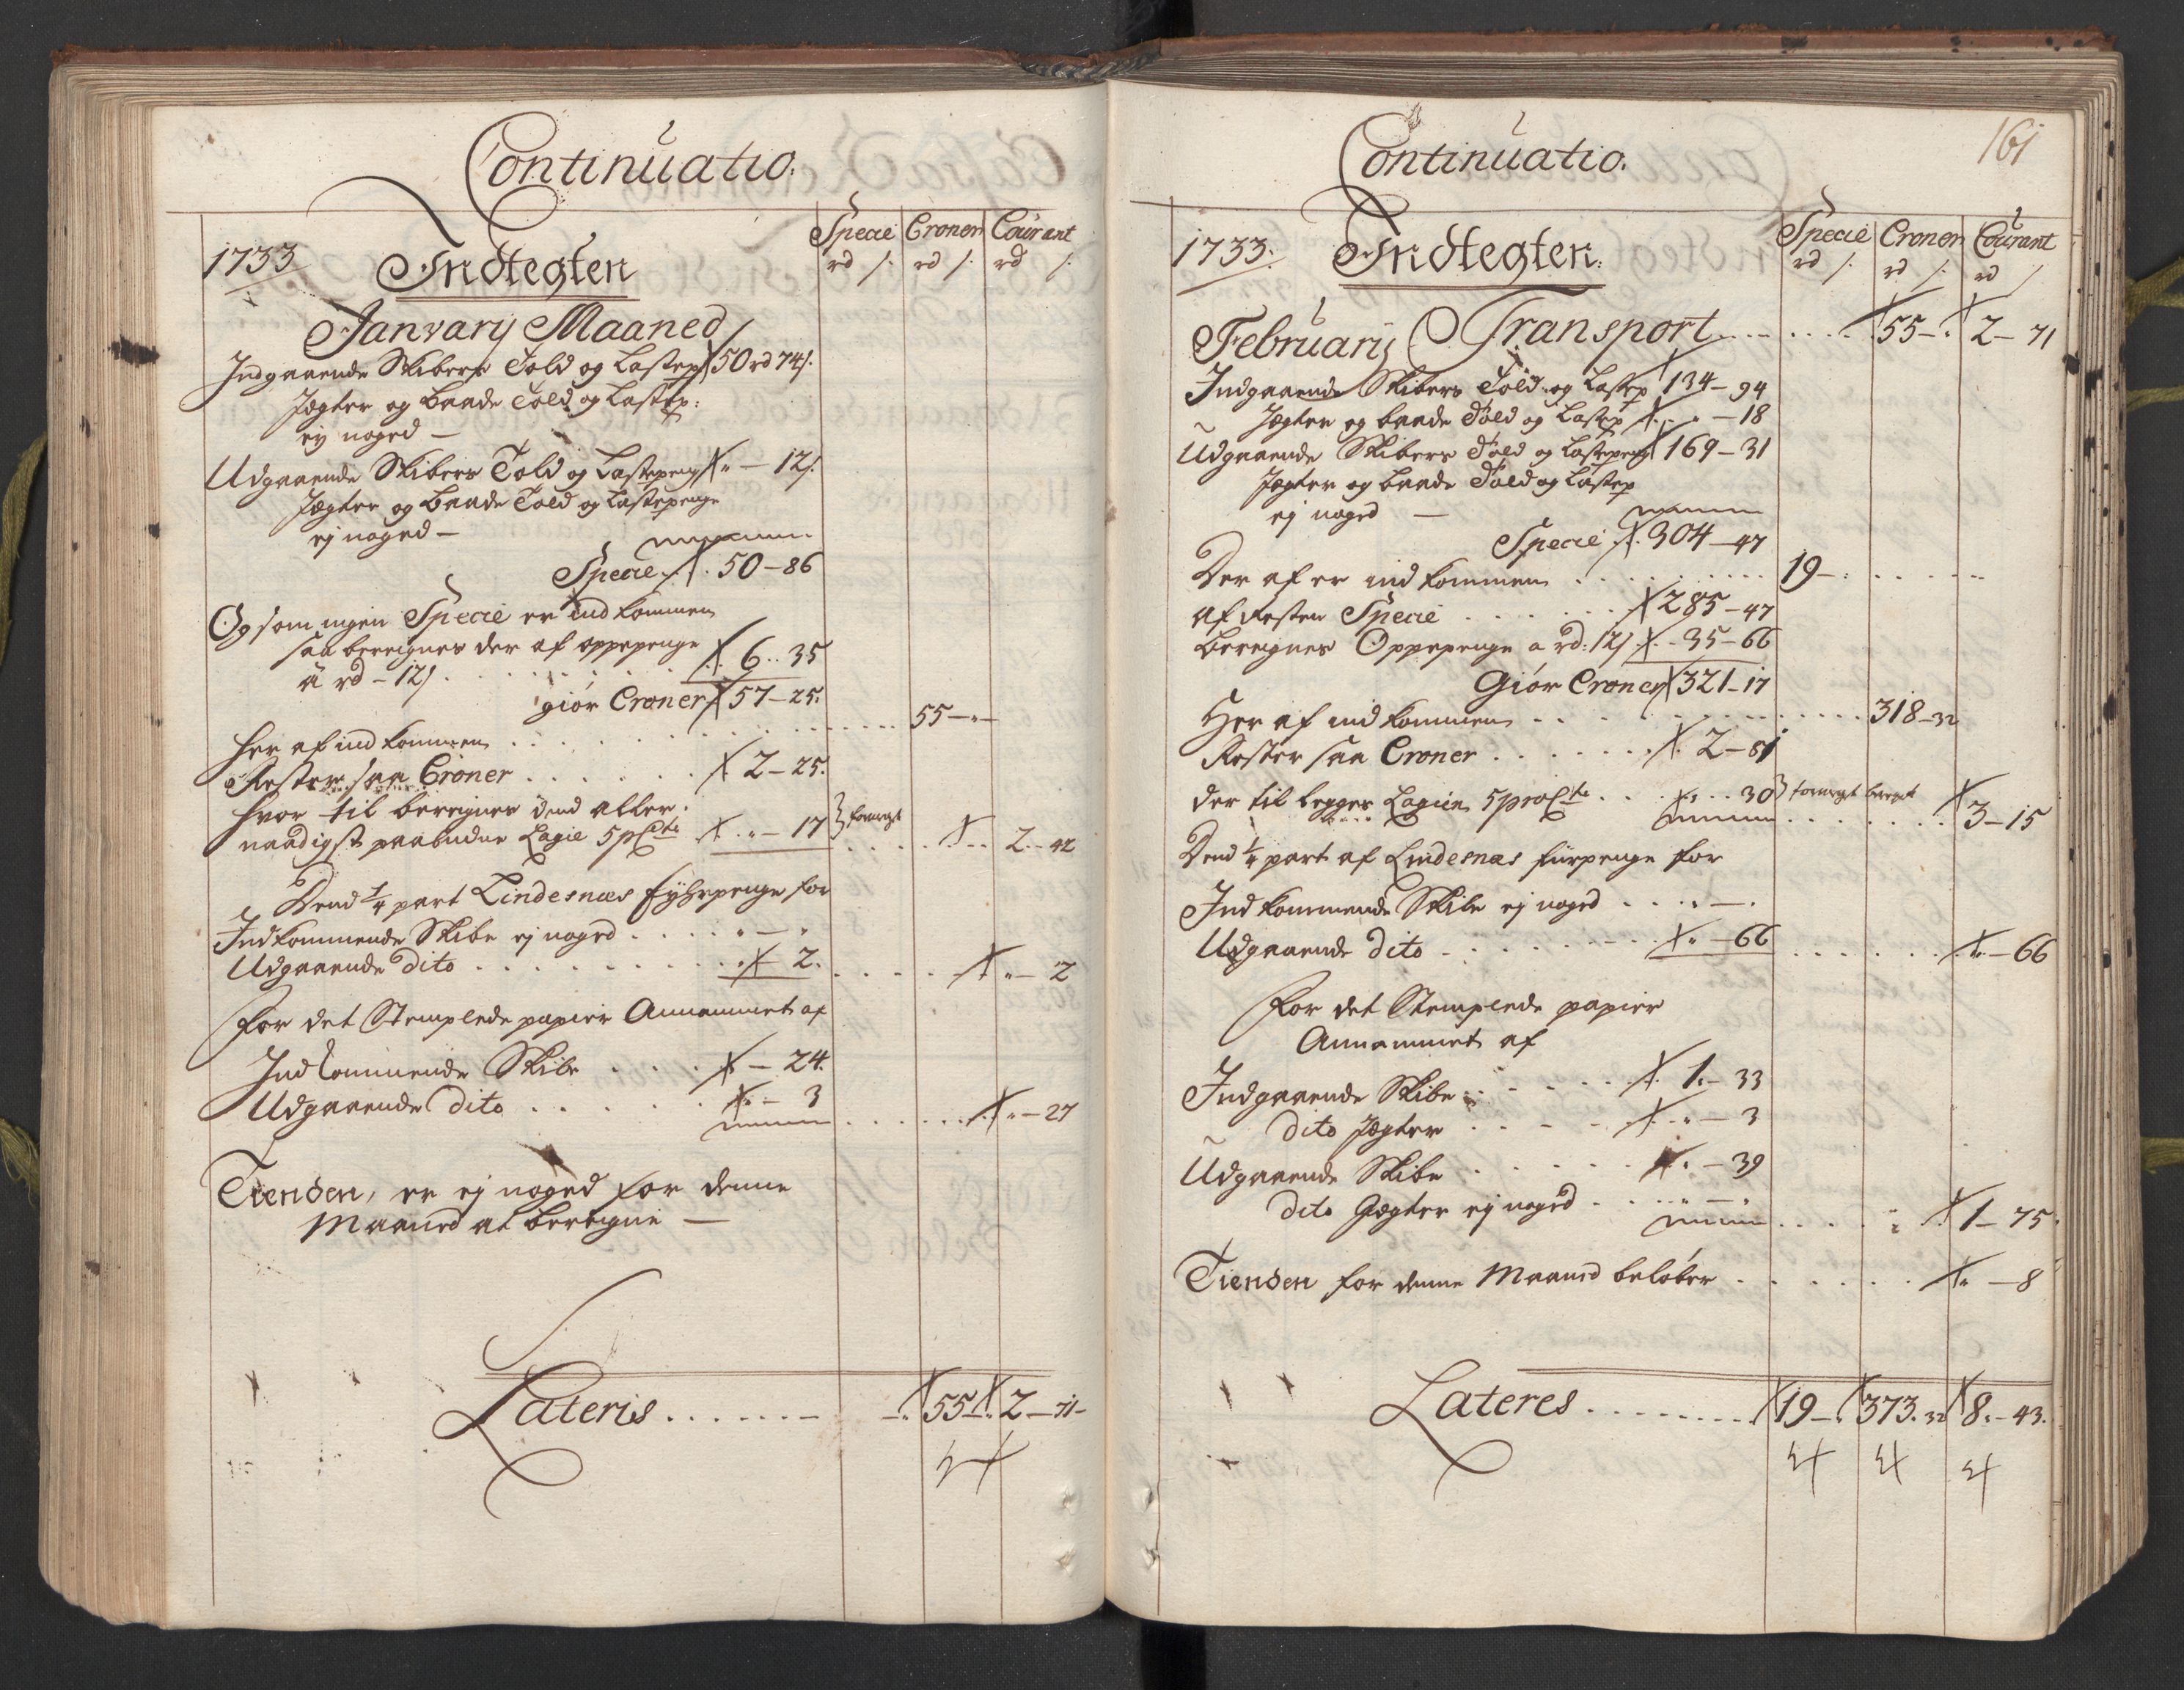 Continuatio.
Specie Cronen Courant
1733 Indtegten rd s. rd s. rd s.
January Maaned
Indgaaende Skibers Told og Lastep 50 rd 74 s.
Jægter og Baade Told og Lastep:
ey noged –
Udgaaende Skibers Told og Lastepeng " – 12 s.
Jægter og Baade Told og Lastepenge
ej noged –
Specie 50 – 86
Og som ingen Specie er ind kommen
saa beregnes der af oppepenge
à rd – 12 s . . . . 6 . . 35
giör Croner 57 – 25.
her af ind kommen . . . . 55 – " –
Rester saa Croner . . . . 2 – 25.
hvor til beregnes dend aller.
naadigst paabudne Lagie 5 pCto " – 17 2 – 42
Dend 1/4 part Lindesnæs fyhrpenge for
Indkommende Skibe ej noged . . . . " – "
Udgaaende dito . . . . " – 2. . . . . " – 2
for det Stemplede papier Annammet af
Indkommende Skibe . . . . – 24.
Udgaaende dito . . . . " – 3 . . . . " – 27
Tienden, er ej noged for denne
Maaned at beregne –
Lateris . . . . 55 – " 2 – 71 –
161
Continuatio.
Specie Cronen Courant
1733. Indtegten. rd s. rd s. rd s
February Transport . . . . 55 – " 2 – 71
Indgaaende Skibers Told og Lastep 134 – 94
Jægter og baade Told og Lastep " – 18
Udgaaende Skibers Told og Lastepeng 169 – 31
Jægter og baade Told og Lastep
ej noged –
Specie 304 – 47
Der af er ind kommen . . . . 19 – "
af Resten Specie . . . . 285 – 47
beregnes Oppepenge a rd: 12 s 35 – 66
Giör Croner 321 – 17
Her af ind kommen . . . . 318 – 32
Rester saa Croner . . . . 2 – 81
der til legges Lagien 5 proCto . . " . . 30 3 – 15
Dend 1/4 part af Lindesnæs fürpenge for
Ind kommende Skibe ej noged . . . " – .
Udgaaende dito . . . . " – 66 . . . . " – 66
for det Stemplede papier
Annammet af
Indgaaende Skibe . . . . 1. – 33
dito Jægter . . . . " – 3
Udgaaende Skibe . . . . " – 39
dito Jægter ej noged . . . . " – " . . . . 1 – 75
Tienden for denne Maaned belöber . . . . " – 8
Lateres . . . . 19 – " 373. 32 8. – 43.